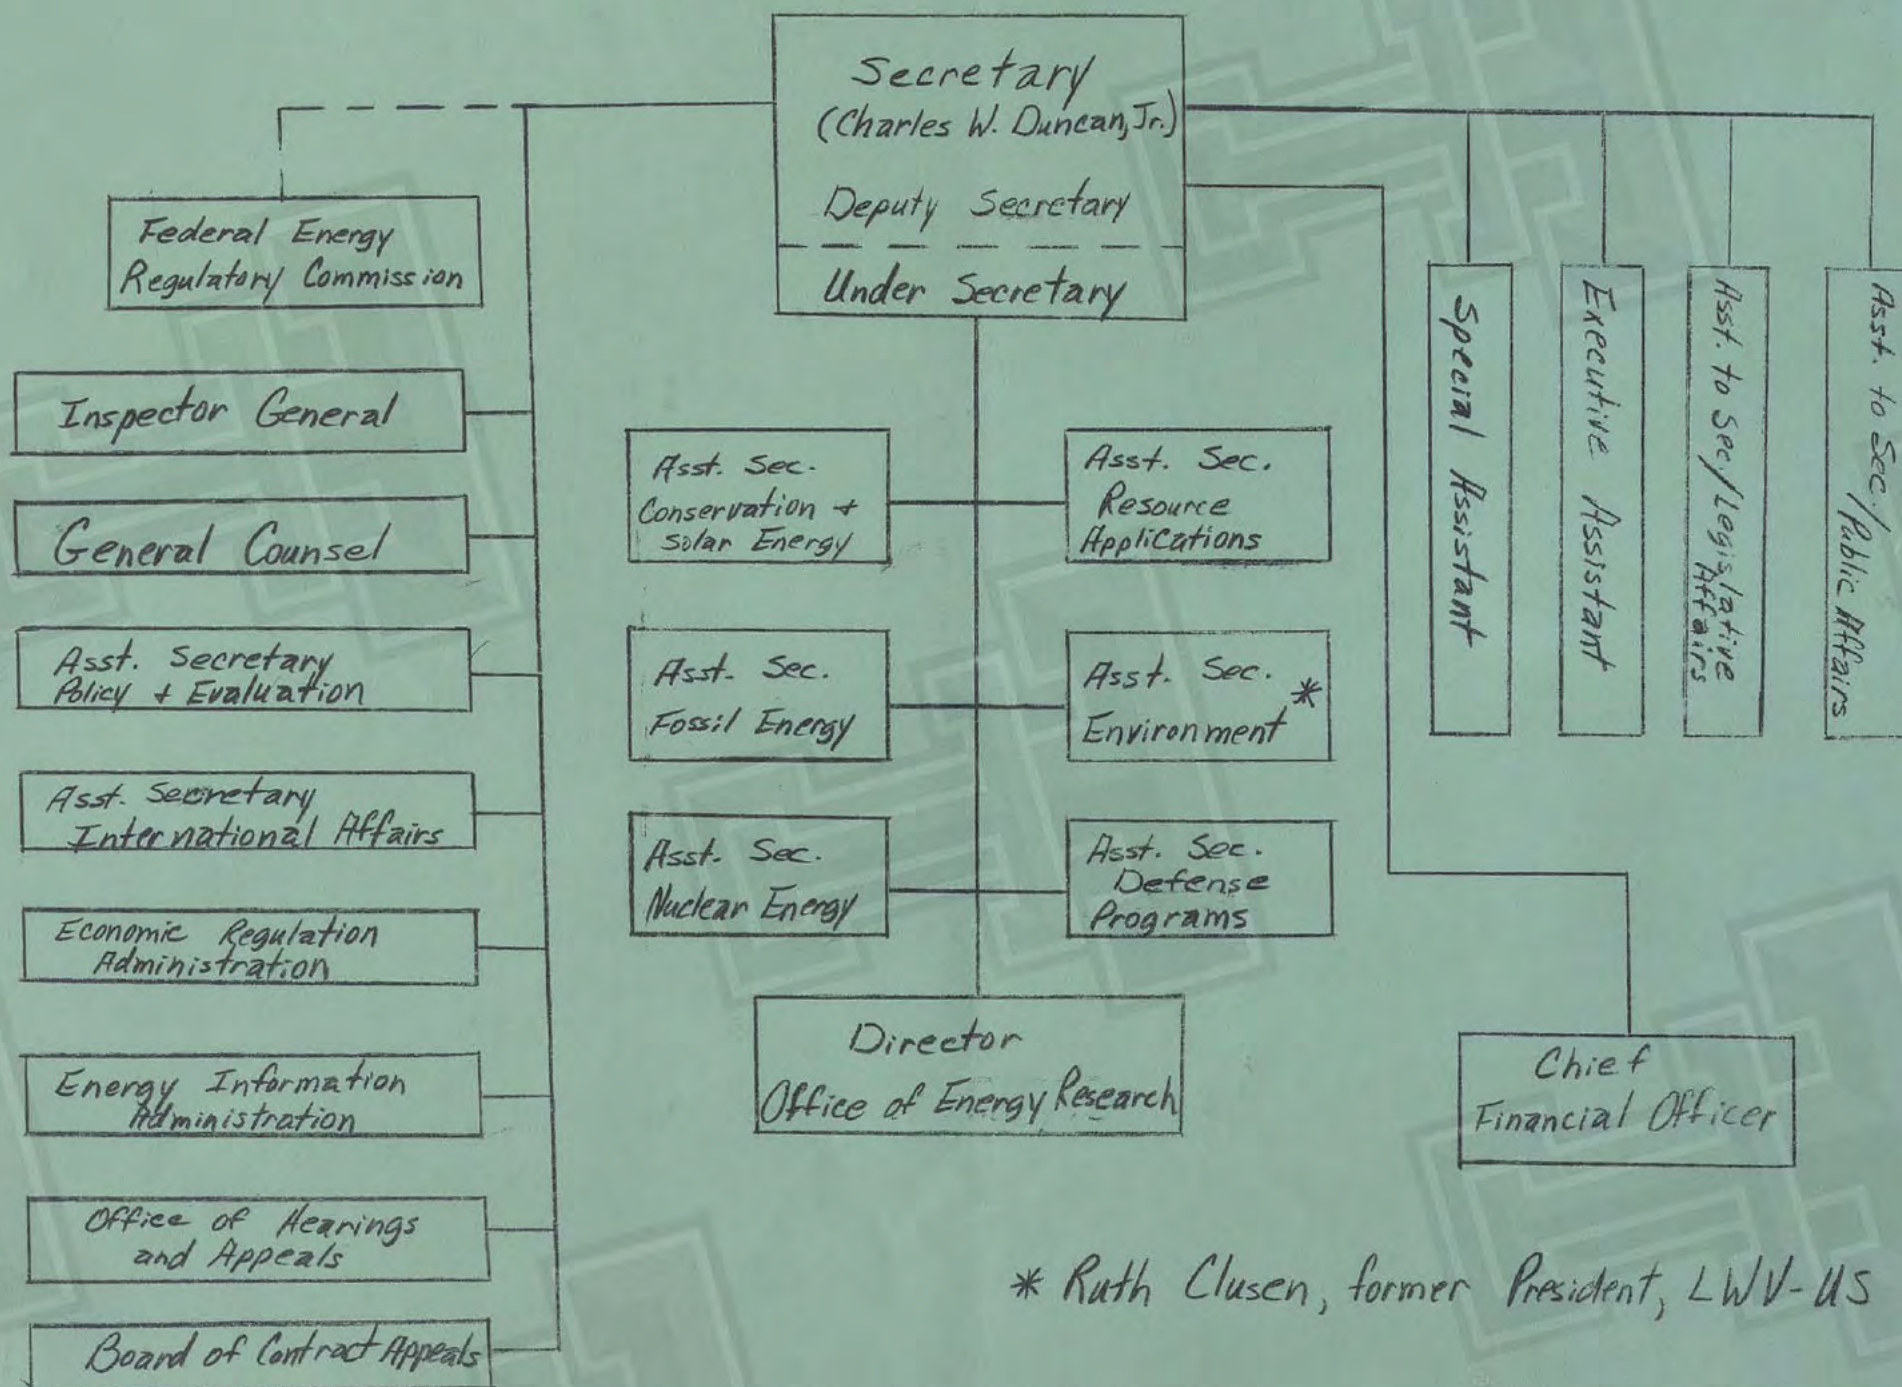 Secretary
(Charles W. Duncan, Jr.)
Deputy Secretary
Under Secretary
Federal Energy
Regulatory Commission
Inspector General
General Counsel
Asst. Secretary
Policy + Evaluation
Asst. Secretary
International Affairs
Economic Regulation
Administration
Energy Information
Administration
Office of Hearings
and Appeals
Board of Contract Appeals
Asst. Sec.
Conservation +
Solar Energy
Asst. Sec.
Resource
Applications
Asst. Sec.
Fossil Energy
Asst. Sec.
Environment *
Asst. Sec.
Nuclear Energy
Asst. Sec.
Defense
Programs
Director
Office of Energy Research
Special Assistant
Executive Assistant
Asst. to Sec/Legislative
Affairs
Asst. to Sec./
Public Affairs
Chief
Financial Officer
* Ruth Clusen, former President, LWV-US